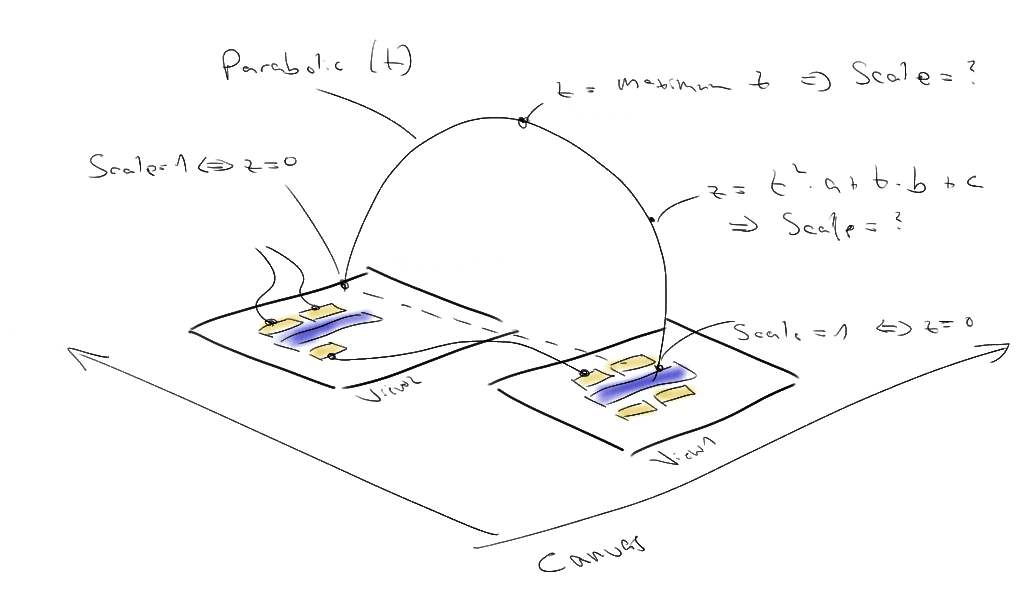 Parabolic (t)
z = maximum z => Scale = ?
Scale=1 <=> z=0
z = t²·a + t·b + c
=> Scale = ?
Scale=1 <=> z=0
View2
View1
Canvas